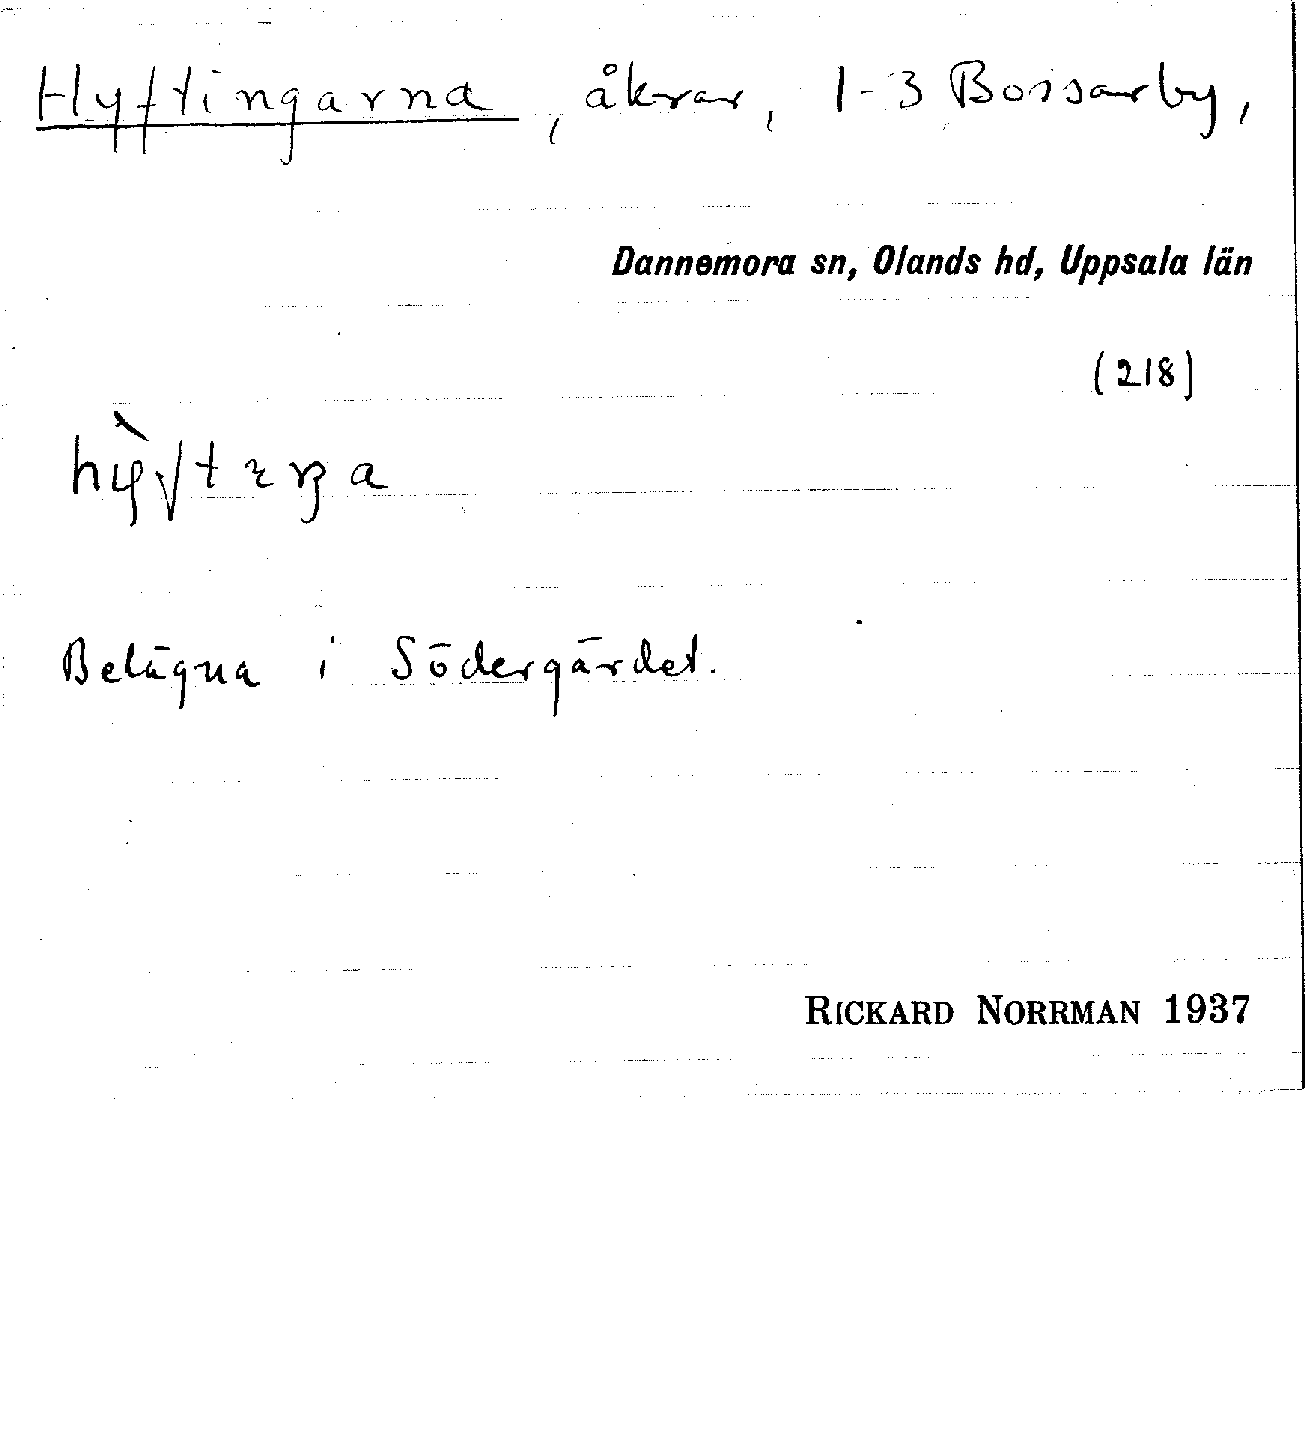 Hyftingarna, åkrar, 1-3 Bossarby,
Dannemora sn, Olands hd, Uppsala län
(218)
Belägna i Södergärdet.
RICKARD NORRMAN 1937